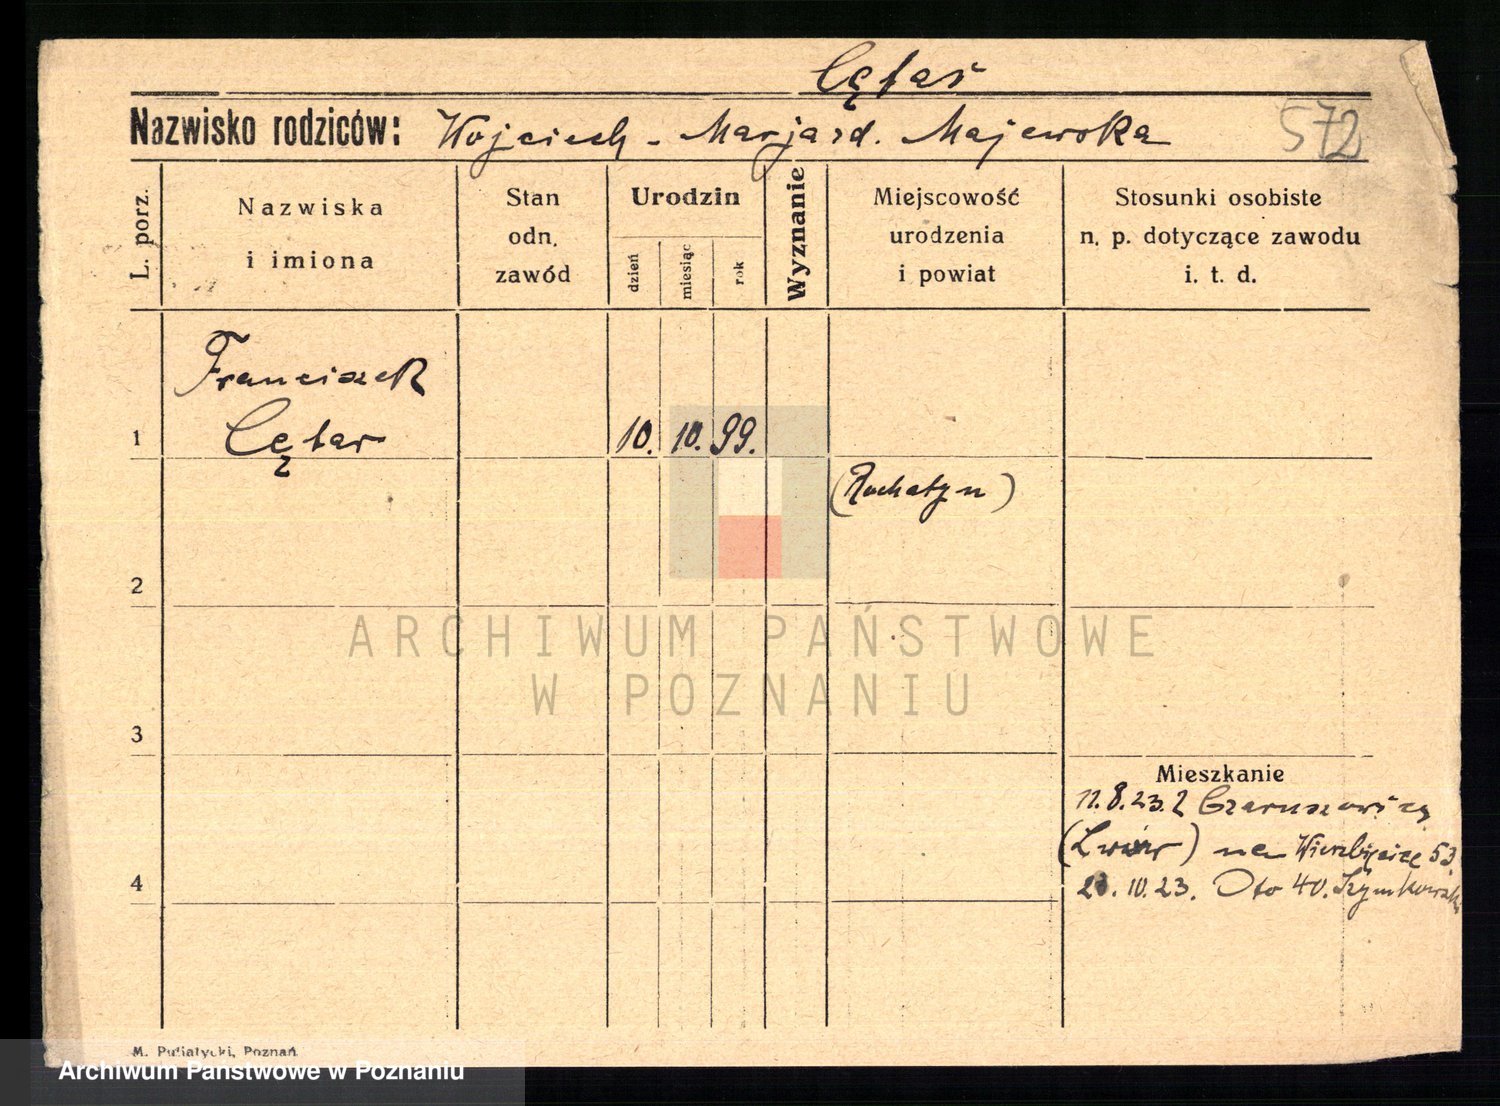 Cętar
Nazwisko rodziców: Wojciech - Marja zd. Majewska
572
L. porz.
Nazwiska
i imiona
Stan
odn.
zawód
Urodzin
dzień
miesiąc
rok
Wyznanie
Miejscowość
urodzenia
i powiat
Stosunki osobiste
n. p. dotyczące zawodu
i. t. d.
Franciszek
1 Cętar 10. 10. 99.
(Rochatyn)
2
ARCHIWUM PAŃSTWOWE
W POZNANIU
3
Mieszkanie
11.8.23. z
(Lwów) na Wierzbięcice 53
4
10.23. Oto 40.
M. Putiatycki, Poznań
Archiwum Państwowe w Poznaniu